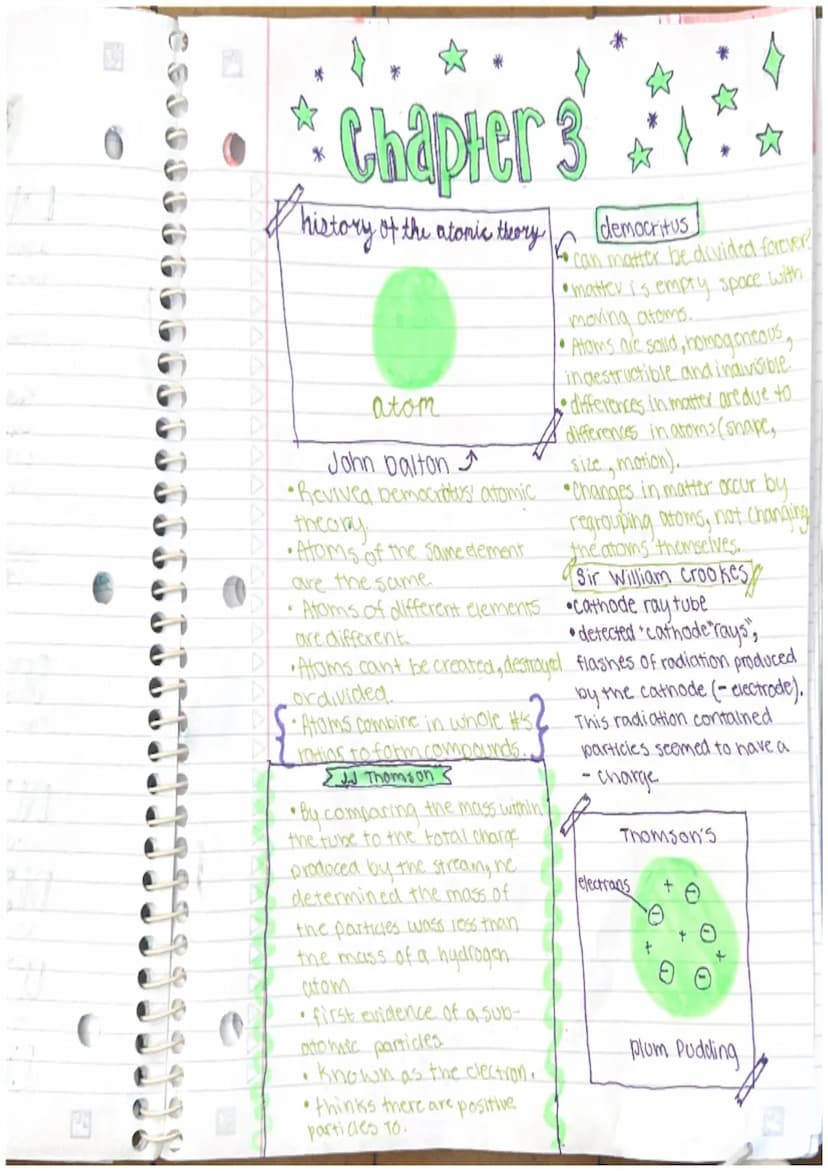 Chapter 3
history of the atomic theory
atom
democritus
• can matter be divided forever?
• matter is empty space with
moving atoms.
• Atoms are solid, homogeneous,
indestructible and indivisible.
• differences in matter are due to
differences in atoms (shape,
size, motion).
• Changes in matter occur by
regrouping atoms, not changing
the atoms themselves.
John Dalton
• Revived Democritus' atomic
theory.
• Atoms of the same element
are the same.
• Atoms of different elements
are different.
• Atoms cant be created, destroyed
or divided.
• Atoms combine in whole #'s
ratios to form compounds.
Sir William Crookes
• Cathode ray tube
• detected "cathode "rays",
flashes of radiation produced
by the cathode (- electrode).
This radiation contained
particles seemed to have a
- charge.
JJ Thomson
• By comparing the mass within
the tube to the total charge
produced by the stream, he
determined the mass of
the particles wass less than
the mass of a hydrogen
atom
• first evidence of a sub-
atomic particles
• Known as the electron.
• thinks there are positive
particles to.
Thomson's
electrons
+ -
-
+ -
+ +
- -
Plum Pudding